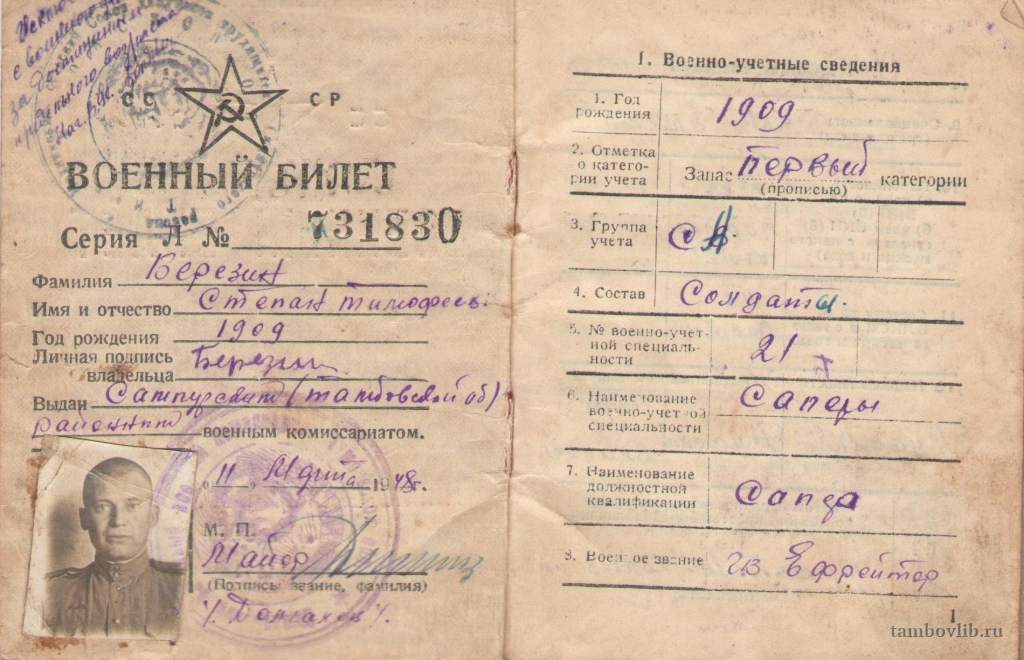 с воинского
за достижением
предельного возраста
СС СР
ВОЕННЫЙ БИЛЕТ
Серия Л № 731830
Фамилия Березин
Имя и отчество Степан Тимофеев.
Год рождения 1909
Личная подпись
владельца Березин
Выдан Сампурским (Тамбовской об)
районным военным комиссариатом.
„11„ Марта 1948г.
М. П.
Майор
(Подписы звание, фамилия)
I. Военно-учетные сведения
1. Год
рождения 1909
2. Отметка
о катего-
рии учета Запас первый категории
(прописью)
3. Группа
учета СА
4. Состав Солдаты.
5. № военно-учет-
ной специаль-
ности 21
6. Наименование
военно-учетной
специальности Саперы
7. Наименование
должностной
квалификации Сапер
8. Военное звание гв Ефрейтор
1
tambovlib.ru